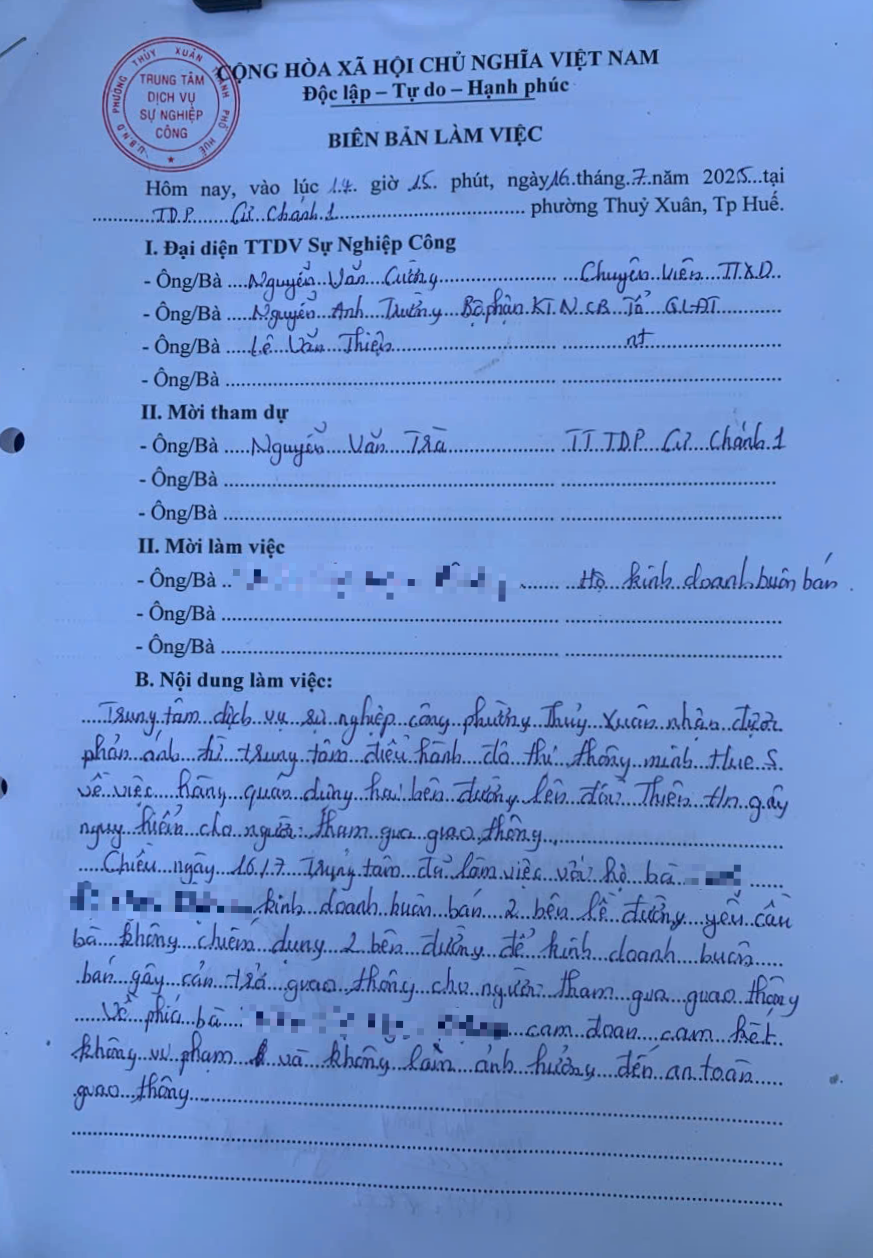 U.B.N.D PHƯỜNG THỦY XUÂN THÀNH PHỐ HUẾ
TRUNG TÂM
DỊCH VỤ
SỰ NGHIỆP
CÔNG
CỘNG HÒA XÃ HỘI CHỦ NGHĨA VIỆT NAM
Độc lập – Tự do – Hạnh phúc
BIÊN BẢN LÀM VIỆC
Hôm nay, vào lúc 14 giờ 15 phút, ngày 16 tháng 7 năm 2025 tại
TDP Cư Chánh 1 phường Thuỷ Xuân, Tp Huế.
I. Đại diện TTDV Sự Nghiệp Công
- Ông/Bà Nguyễn Văn Cường Chuyên Viên TTXD
- Ông/Bà Nguyễn Anh Trường Bộ phận KT.N CB Tổ QLĐT
- Ông/Bà Lê Văn Thiện nt
- Ông/Bà
II. Mời tham dự
- Ông/Bà Nguyễn Văn Trà TT TDP Cư Chánh 1
- Ông/Bà
- Ông/Bà
II. Mời làm việc
- Ông/Bà Hộ kinh doanh buôn bán
- Ông/Bà
- Ông/Bà
B. Nội dung làm việc:
Trung tâm dịch vụ sự nghiệp công phường Thủy Xuân nhận được
phản ánh từ trung tâm điều hành đô thị thông minh Hue S
về việc hàng quán dừng hai bên đường lên đồi Thiên An gây
nguy hiểm cho người tham gua giao thông
Chiều ngày 16/7 Trung tâm đã làm việc với hộ bà
kinh doanh buôn bán 2 bên lề đường yêu cầu
bà không chiếm dụng 2 bên đường để kinh doanh buôn
bán gây cản trở giao thông cho người tham gua giao thông
Về phía bà cam đoan cam kết
không vi phạm và không làm ảnh hưởng đến an toàn
giao thông